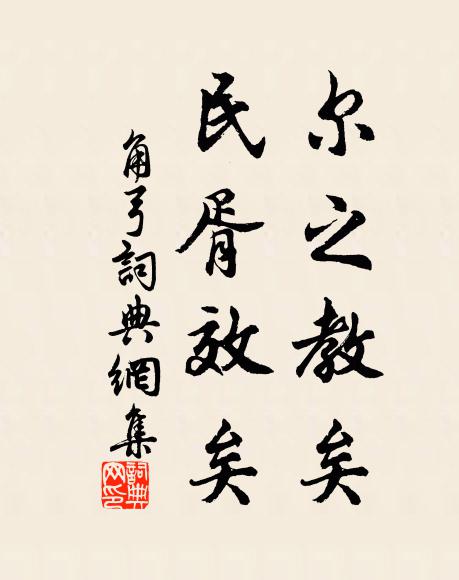 尔之教矣
民胥效矣
角弓詞典網集
詞典
网印